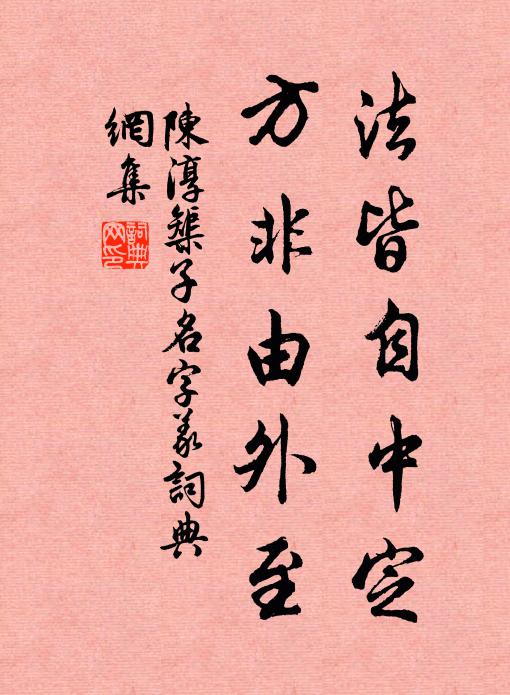 法皆自中定
方非由外至
陳淳築子名字義詞典
網集
詞典
网印